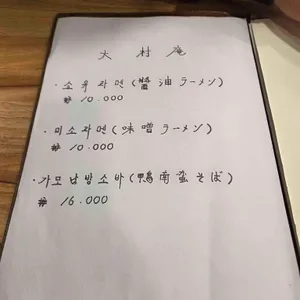 大村庵
・소유라멘(醬油ラーメン)
₩ 10.000
・미소라멘(味噌ラーメン)
₩ 10.000
・가모남방소바(鴨南蛮そば)
₩ 16.000